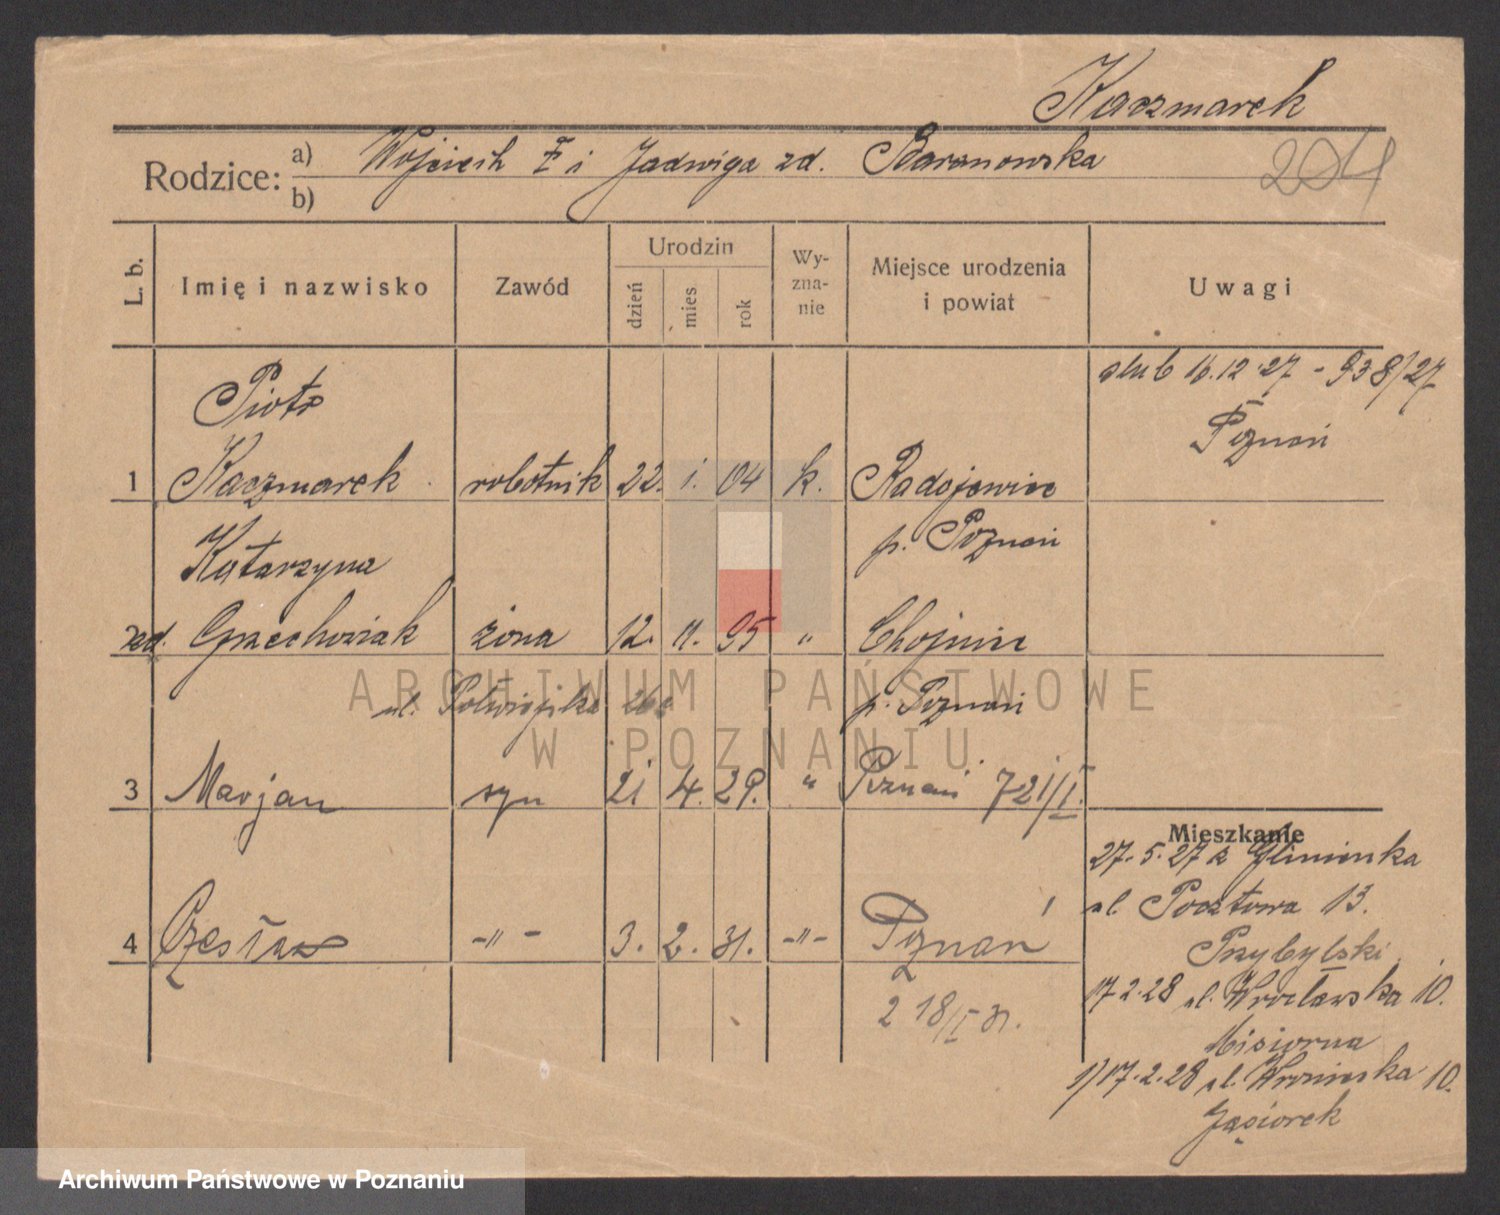 Kaczmarek
Rodzice: a) Wojciech i Jadwiga zd. Baranowska
b)
204
L. b. Imię i nazwisko Zawód Urodzin dzień mies. rok Wyznanie Miejsce urodzenia i powiat Uwagi
ślub 16.12.27 - 938/27
Poznań
Piotr
1 Kaczmarek robotnik 22. 1. 04 k. Radojewice
p. Poznań
Katarzyna
zd. Grzechowiak żona 12. 11. 95 " Chojnic
p. Poznań
3 Marjan syn 21 4. 29. " Poznań 721/I.
4 Czesław -"- 3. 2. 31. -"- Poznań
2 18/I 31.
Mieszkanie
27.5.27 z Glinienka
ul. Pocztowa 13.
Przybylski
17.2.28 ul. Wrocławska 10.
Misiorna
1) 17.2.28 ul. Wroniecka 10.
Jąsiorek
ARCHIWUM PAŃSTWOWE
W POZNANIU
Archiwum Państwowe w Poznaniu